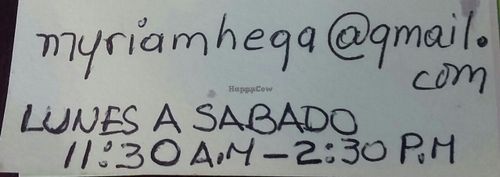 myriamhega@gmail.
com
HappyCow
LUNES A SABADO
11:30 A.M - 2:30 P.M